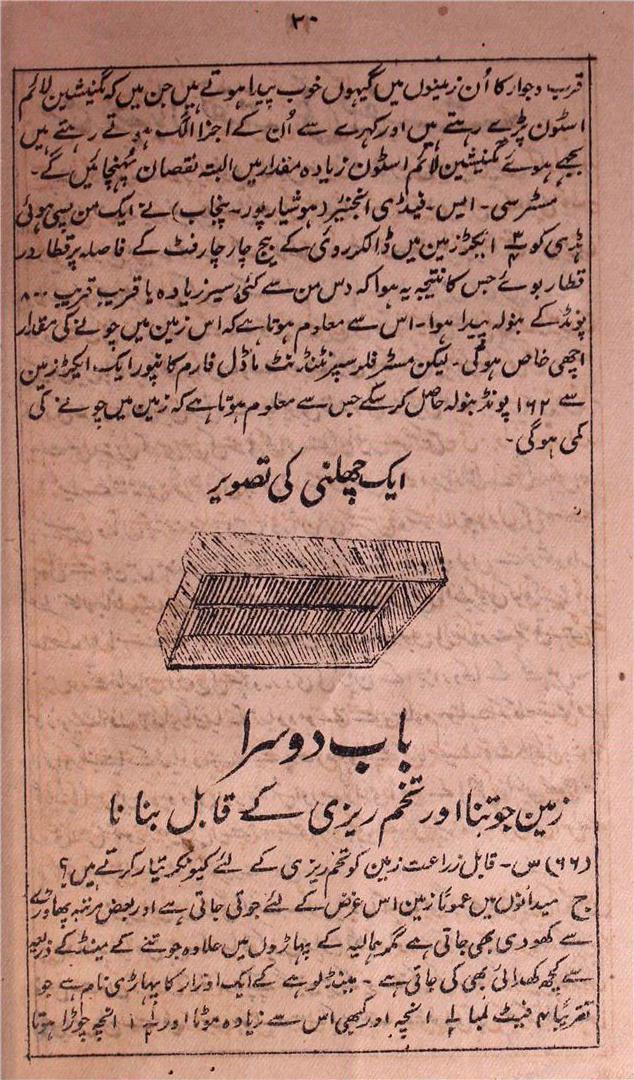 ۲۰
قرب وجوار کا اُن زمینوں میں گیہوں خوب پیدا ہوتے ہیں جن میں کہ مگنیشین لائم
اسٹون پڑے رہتے ہیں اور کہرے سے اُن کے اجزا الگ ہوتے رہتے ہیں
بجھے ہوئے مگنیشین لائم اسٹون زیادہ مقدار میں البتہ نقصان پہنچائیں گے۔
مسٹر سی۔ ایس۔ فیڈی انجنیئر (ہوشیارپور۔ پنجاب) نے ایک من پسی ہوئی
ہڈی کو ۳/۴ ایکڑ زمین میں ڈالکر روئی کے بیج چار چار فٹ کے فاصلہ پر قطار در
قطار بوئے جس کا نتیجہ یہ ہوا کہ دس من سے کئی سیر زیادہ یا قریب قریب ۸۰۰
پونڈ کے بنولہ پیدا ہوا۔ اس سے معلوم ہوتا ہے کہ اس زمین میں چونے کی مقدار
اچھی خاص ہوگی۔ لیکن مسٹر فلر سپرنٹنڈنٹ ماڈل فارم کانپور ایک ایکڑ زمین
سے ۱۶۲ پونڈ بنولہ حاصل کر سکے جس سے معلوم ہوتا ہے کہ زمین میں چونے کی
کمی ہوگی۔
ایک چھلنی کی تصویر
باب دوسرا
زمین جوتنا اور تخم ریزی کے قابل بنانا
(۶۶) س۔ قابل زراعت زمین کو تخم ریزی کے لئے کیونکر تیار کرتے ہیں؟
ج میدانوں میں عموماً زمین اس غرض کے لئے جوتی جاتی ہے اور بعض مرتبہ پھاوڑے
سے کھودی بھی جاتی ہے مگر ہمالیہ کے پہاڑوں میں علاوہ جوتنے کے مینڈ کے ذریعہ
سے کچھ کھدائی بھی کی جاتی ہے۔ مینڈ لوہے کے ایک اوزار کا پہاڑی نام ہے جو
تقریباً ۴ فیٹ لمبا ۱/۲ انچہ اور کبھی اس سے زیادہ موٹا اور ۱ ۱/۲ انچہ چوڑا ہوتا